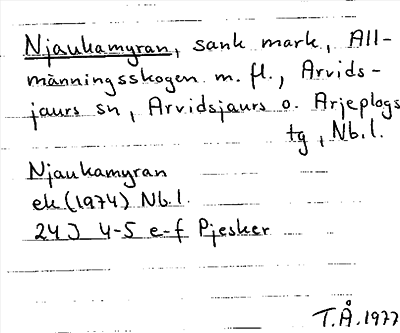 Njaukamyran, sank mark, All-
männingsskogen m. fl., Arvids-
jaurs sn, Arvidsjaurs o. Arjeplogs
tg, Nb.l.
Njaukamyran
ek (1974) Nb.l.
24J 4-5 e-f Pjesker
T.Å. 1977